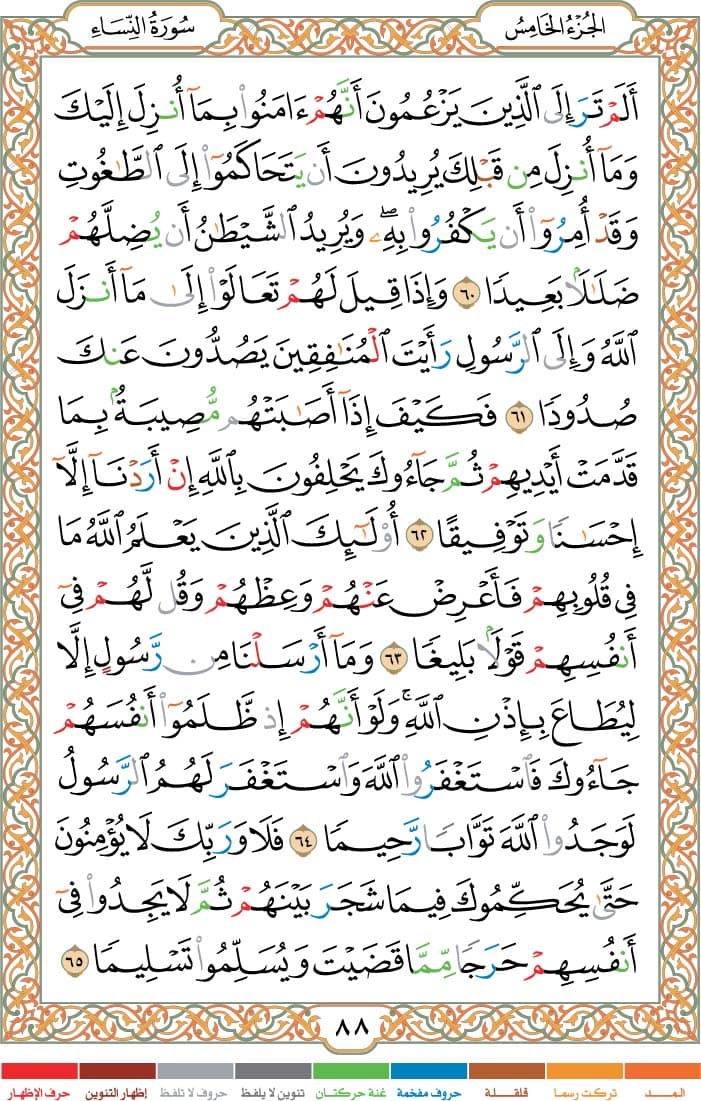 الجُزْءُ الخَامِسُ
سُورَةُ النِّسَاءِ
أَلَمْ تَرَ إِلَى ٱلَّذِينَ يَزْعُمُونَ أَنَّهُمْ ءَامَنُوا۟ بِمَآ أُنزِلَ إِلَيْكَ
وَمَآ أُنزِلَ مِن قَبْلِكَ يُرِيدُونَ أَن يَتَحَاكَمُوٓا۟ إِلَى ٱلطَّٰغُوتِ
وَقَدْ أُمِرُوٓا۟ أَن يَكْفُرُوا۟ بِهِۦۖ وَيُرِيدُ ٱلشَّيْطَٰنُ أَن يُضِلَّهُمْ
ضَلَٰلًۢا بَعِيدًا ٦٠ وَإِذَا قِيلَ لَهُمْ تَعَالَوْا۟ إِلَىٰ مَآ أَنزَلَ
ٱللَّهُ وَإِلَى ٱلرَّسُولِ رَأَيْتَ ٱلْمُنَٰفِقِينَ يَصُدُّونَ عَنكَ
صُدُودًا ٦١ فَكَيْفَ إِذَآ أَصَٰبَتْهُم مُّصِيبَةٌۢ بِمَا
قَدَّمَتْ أَيْدِيهِمْ ثُمَّ جَآءُوكَ يَحْلِفُونَ بِٱللَّهِ إِنْ أَرَدْنَآ إِلَّآ
إِحْسَٰنًا وَتَوْفِيقًا ٦٢ أُو۟لَٰٓئِكَ ٱلَّذِينَ يَعْلَمُ ٱللَّهُ مَا
فِى قُلُوبِهِمْ فَأَعْرِضْ عَنْهُمْ وَعِظْهُمْ وَقُل لَّهُمْ فِىٓ
أَنفُسِهِمْ قَوْلًۢا بَلِيغًا ٦٣ وَمَآ أَرْسَلْنَا مِن رَّسُولٍ إِلَّا
لِيُطَاعَ بِإِذْنِ ٱللَّهِۚ وَلَوْ أَنَّهُمْ إِذ ظَّلَمُوٓا۟ أَنفُسَهُمْ
جَآءُوكَ فَٱسْتَغْفَرُوا۟ ٱللَّهَ وَٱسْتَغْفَرَ لَهُمُ ٱلرَّسُولُ
لَوَجَدُوا۟ ٱللَّهَ تَوَّابًا رَّحِيمًا ٦٤ فَلَا وَرَبِّكَ لَا يُؤْمِنُونَ
حَتَّىٰ يُحَكِّمُوكَ فِيمَا شَجَرَ بَيْنَهُمْ ثُمَّ لَا يَجِدُوا۟ فِىٓ
أَنفُسِهِمْ حَرَجًا مِّمَّا قَضَيْتَ وَيُسَلِّمُوا۟ تَسْلِيمًا ٦٥
٨٨
المـــد تركت رسما قلقـلة حروف مفخمة غنة حركتان تنوين لا يلفظ حروف لا تلفظ إظهار التنوين حرف الإظهار